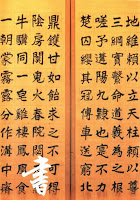 地維賴以立天柱賴以尊
三綱實繫命道義為之根
嗟予遘陽九隸也實不力
楚囚纓其冠傳車送窮北
鼎鑊甘如飴求之不可得
陰房闃鬼火春院閟天黑
牛驥同一皂雞棲鳳凰食
一朝蒙霧露分作溝中瘠
書